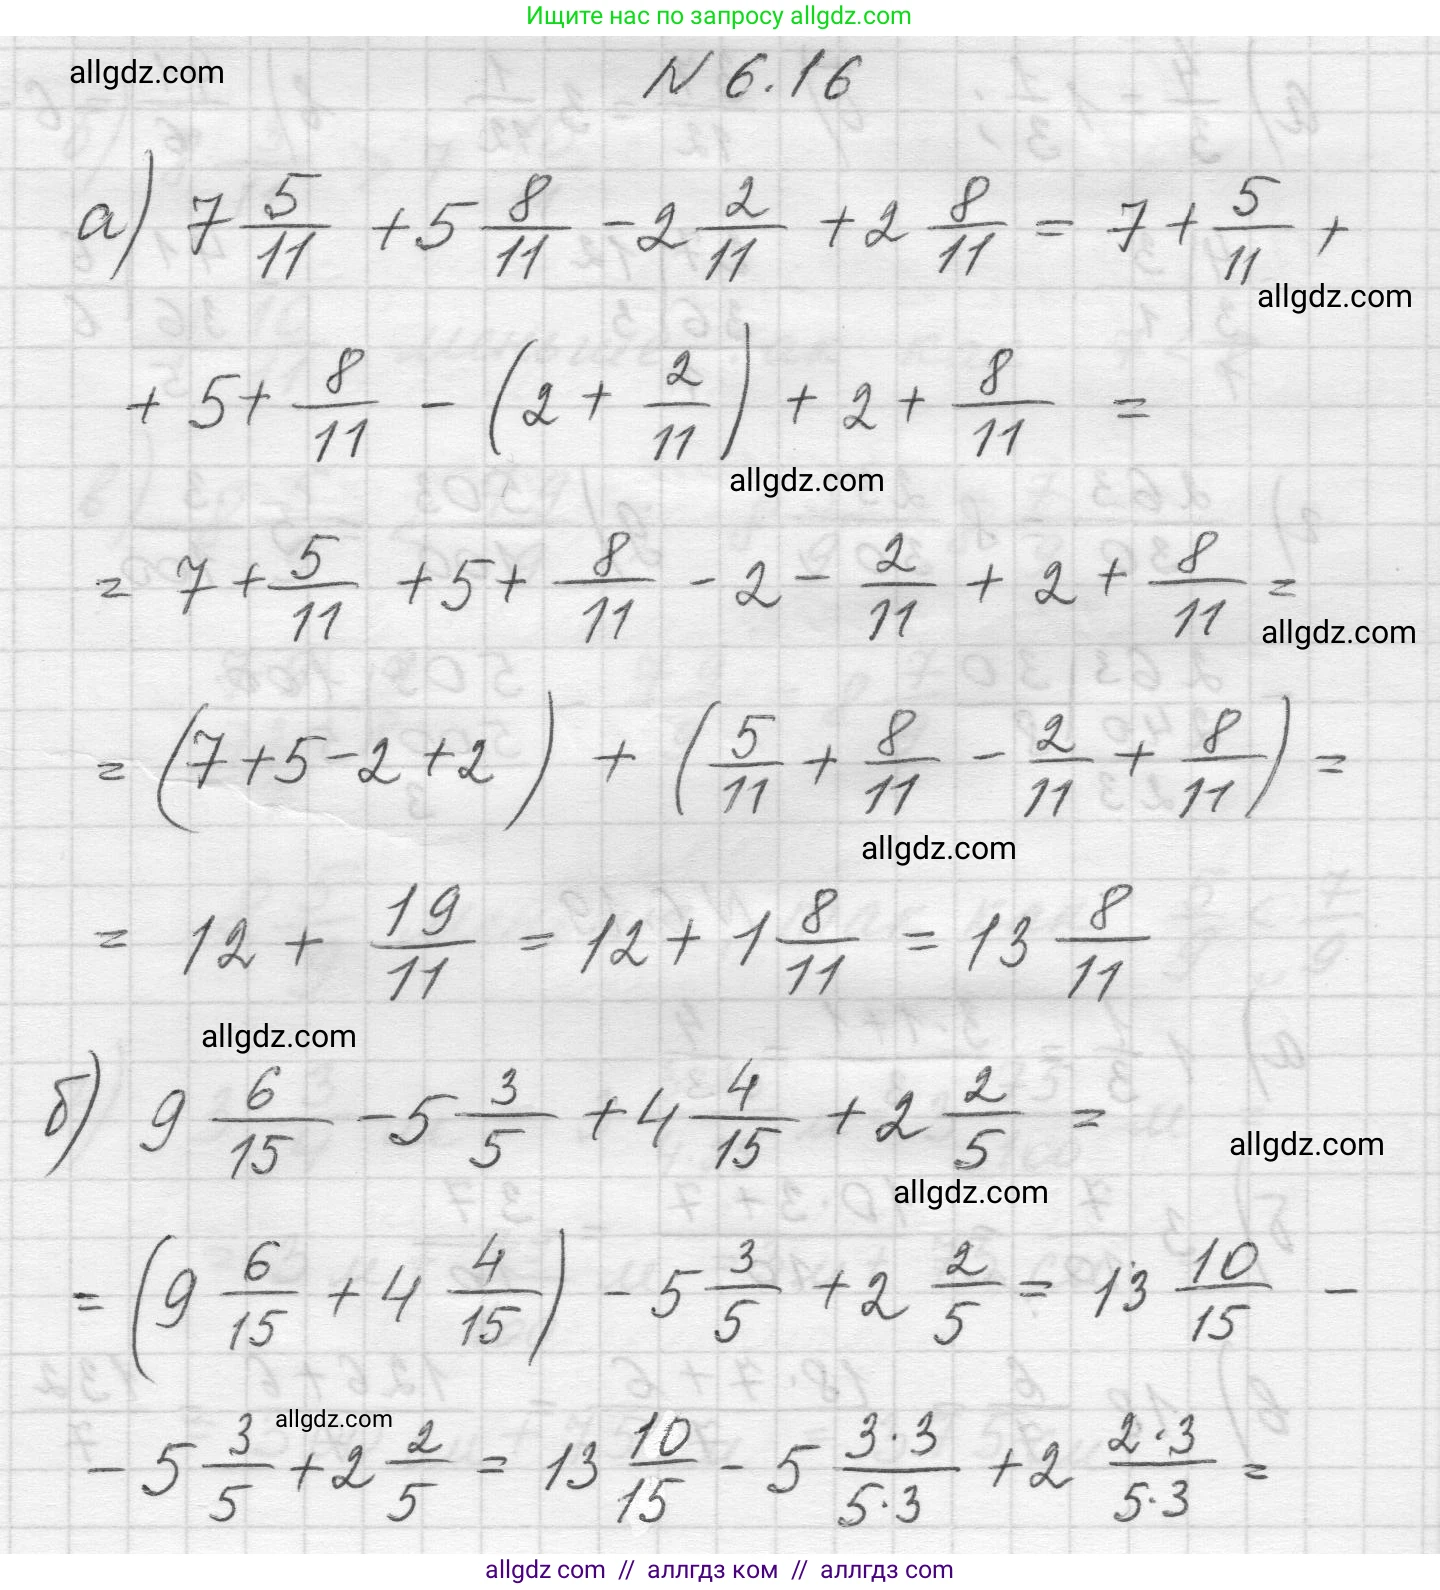 Ищите нас по запросу allgdz.com
allgdz.com
N 6.16
а) 7 5/11 + 5 8/11 - 2 2/11 + 2 8/11 = 7 + 5/11 +
allgdz.com
+ 5 + 8/11 - (2 + 2/11) + 2 + 8/11 =
allgdz.com
= 7 + 5/11 + 5 + 8/11 - 2 - 2/11 + 2 + 8/11 =
allgdz.com
= (7 + 5 - 2 + 2) + (5/11 + 8/11 - 2/11 + 8/11) =
allgdz.com
= 12 + 19/11 = 12 + 1 8/11 = 13 8/11
allgdz.com
б) 9 6/15 - 5 3/5 + 4 4/15 + 2 2/5 =
allgdz.com
allgdz.com
= (9 6/15 + 4 4/15) - 5 3/5 + 2 2/5 = 13 10/15 -
allgdz.com
- 5 3/5 + 2 2/5 = 13 10/15 - 5 3·3/5·3 + 2 2·3/5·3 =
allgdz com // аллгдз ком // аллгдз com